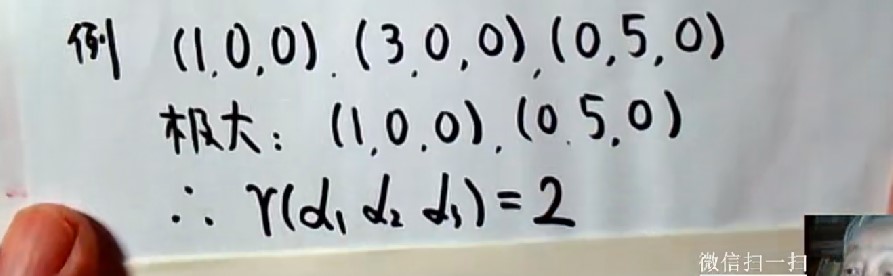 例 (1,0,0),(3,0,0),(0,5,0)
极大: (1,0,0),(0,5,0)
∴ r(α₁ α₂ α₃)=2
微信扫一扫